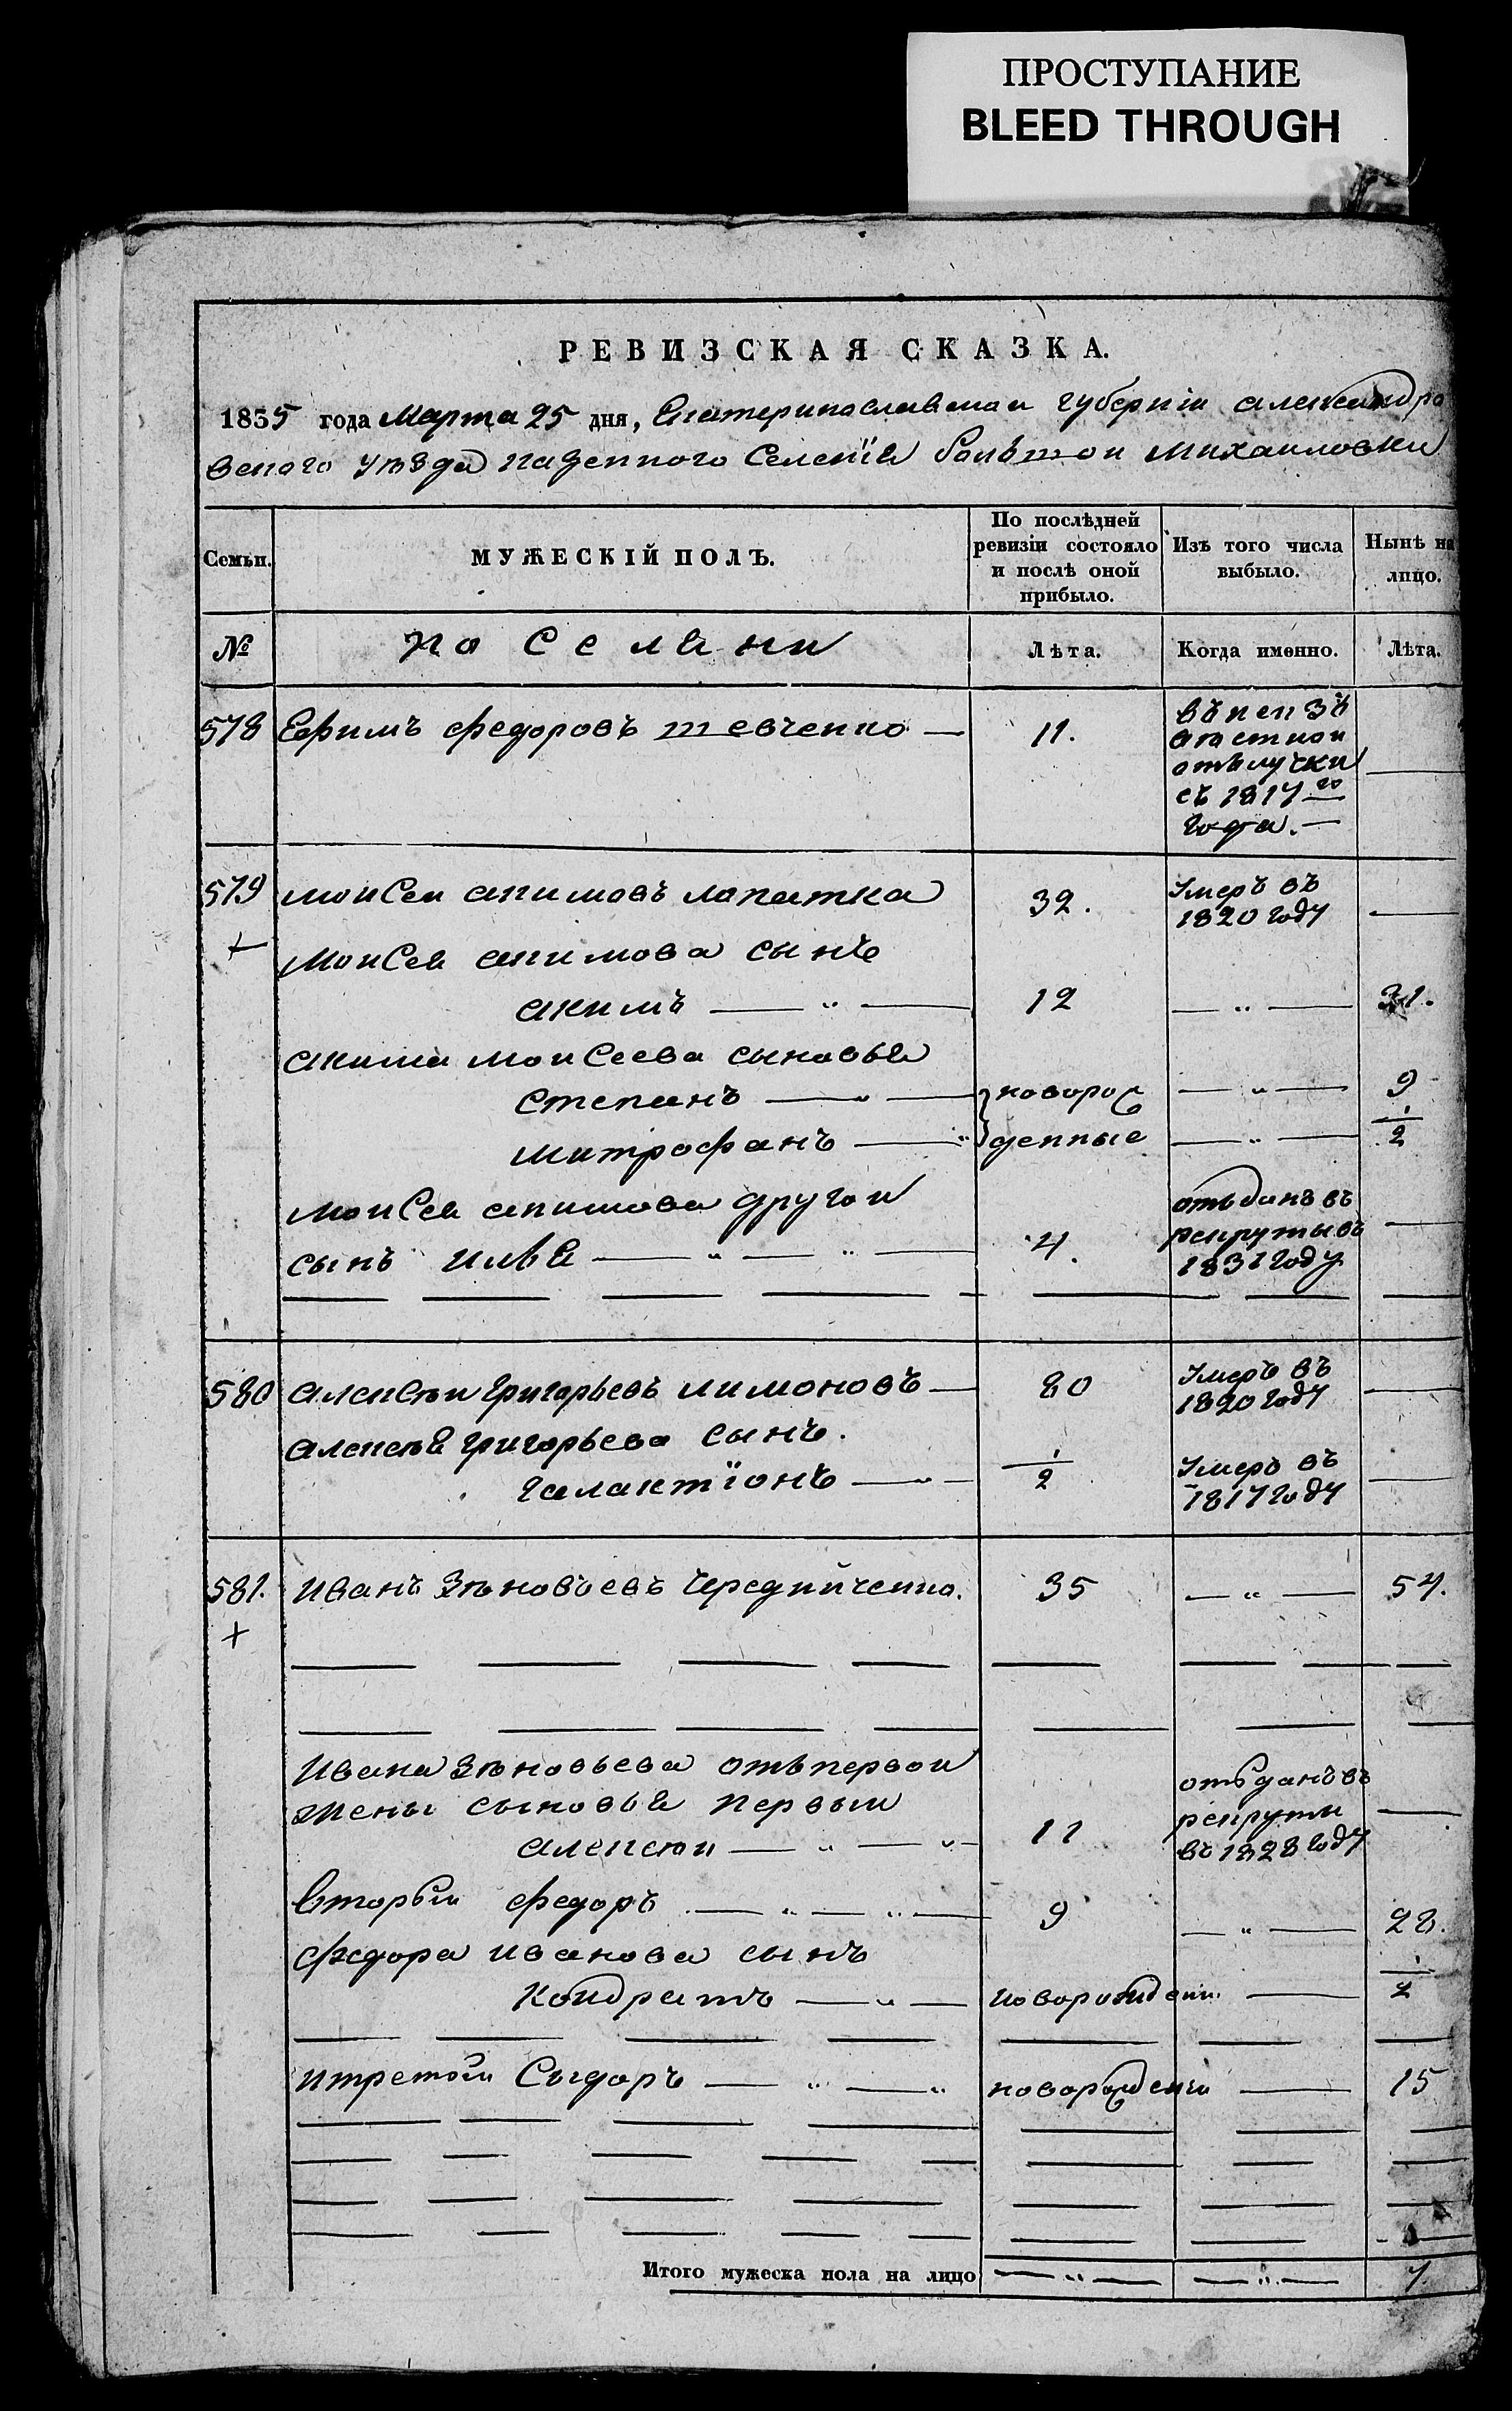 ПРОСТУПАНИЕ
BLEED THROUGH
РЕВИЗСКАЯ СКАЗКА.
1835 года Марта 25 дня, Екатеринославской губернiи александро
вского уѣзда казенного Селенiя большой михаиловки
Семьи. МУЖЕСКІЙ ПОЛЪ. По послѣдней ревизіи состояло и послѣ оной прибыло. Изъ того числа выбыло. Нынѣ на лицо.
№ Лѣта. Когда именно. Лѣта.
578 Ефимъ федоровъ шевченко — 11.
отълучки
съ 1817го
года. —
579 моисей акимовъ лопатка 32. Умеръ въ 1820 году —
моисея акимова сынъ
акимъ — " — 12 — " — 31.
акима моисеева сыновья
степанъ — " — новорож — " — 9
митрофанъ — " денные — " — 1/2
моисея акимова другой
сынъ илья — " — " — 4. отъданъ въ рекруты въ 1831 году —
580 алексѣй григорьевъ лимоновъ — 80 Умеръ въ 1820 году —
алексѣя григорьева сынъ.
галактïонъ — " — 1/2 Умеръ въ 1817 году —
581. иванъ Зѣновьевъ Чередниченко. 35 — " — 54.
ивана Зѣновьева отъ первой
жены сыновья первый
алексѣй — " — " 11 отъданъ въ рекруты въ 1828 году —
вторый федоръ — " — " — 9 — " — 28.
федора иванова сынъ
Кондратъ — " — новорожденн. — 1/2
итретiй Сыдоръ — " — " новорожденн — 15
Итого мужеска пола на лицо — " — — " — 7.